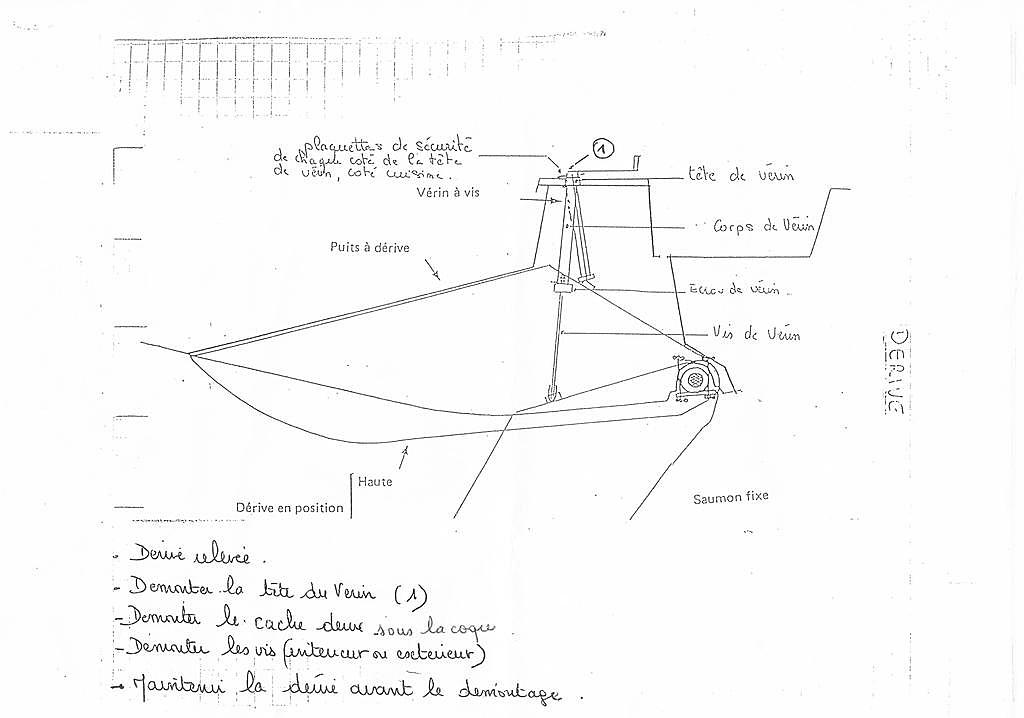 plaquettes de sécurité
de chaque coté de la tête
de vérin, coté cuisine.
1
tête de vérin
Vérin à vis
Corps de Vérin
Puits à dérive
Ecrou de vérin
Vis de Vérin
DERIVE
Haute
Dérive en position
Saumon fixe
- Dérive relevée.
- Demonter la tête du Verin (1)
- Demonter le cache derive sous la coque
- Démonter les vis (interieur ou exterieur)
- Maintenir la dérive avant le demontage.